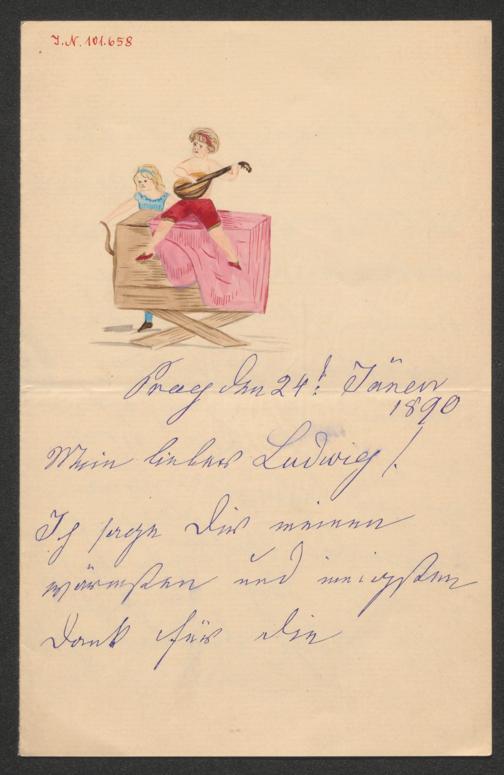 I.N. 101.658
Prag den 24t. Jäner
1890
Mein lieber Ludwig!
Ich sage Dir meinen
wärmsten und innigsten
Dank für die